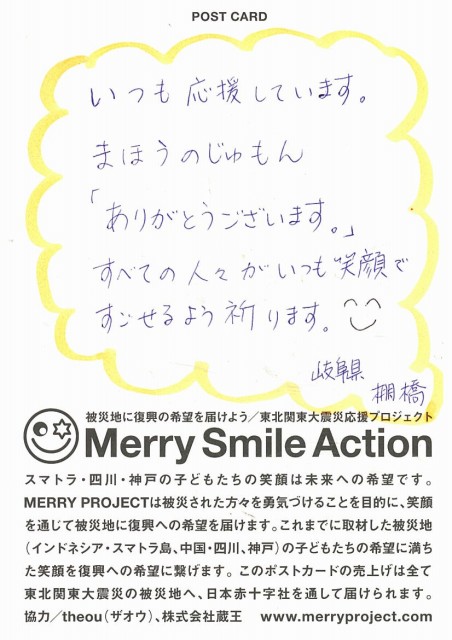 POST CARD
いつも応援しています。
まほうのじゅもん
「ありがとうございます。」
すべての人々がいつも笑顔で
すごせるよう祈ります。
岐阜県
棚橋
被災地に復興の希望を届けよう／東北関東大震災応援プロジェクト
Merry Smile Action
スマトラ・四川・神戸の子どもたちの笑顔は未来への希望です。
MERRY PROJECTは被災された方々を勇気づけることを目的に、笑顔
を通じて被災地に復興への希望を届けます。これまでに取材した被災地
（インドネシア・スマトラ島、中国・四川、神戸）の子どもたちの希望に満ち
た笑顔を復興への希望に繋げます。このポストカードの売上げは全て
東北関東大震災の被災地へ、日本赤十字社を通して届けられます。
協力／theou（ザオウ）、株式会社蔵王　www.merryproject.com